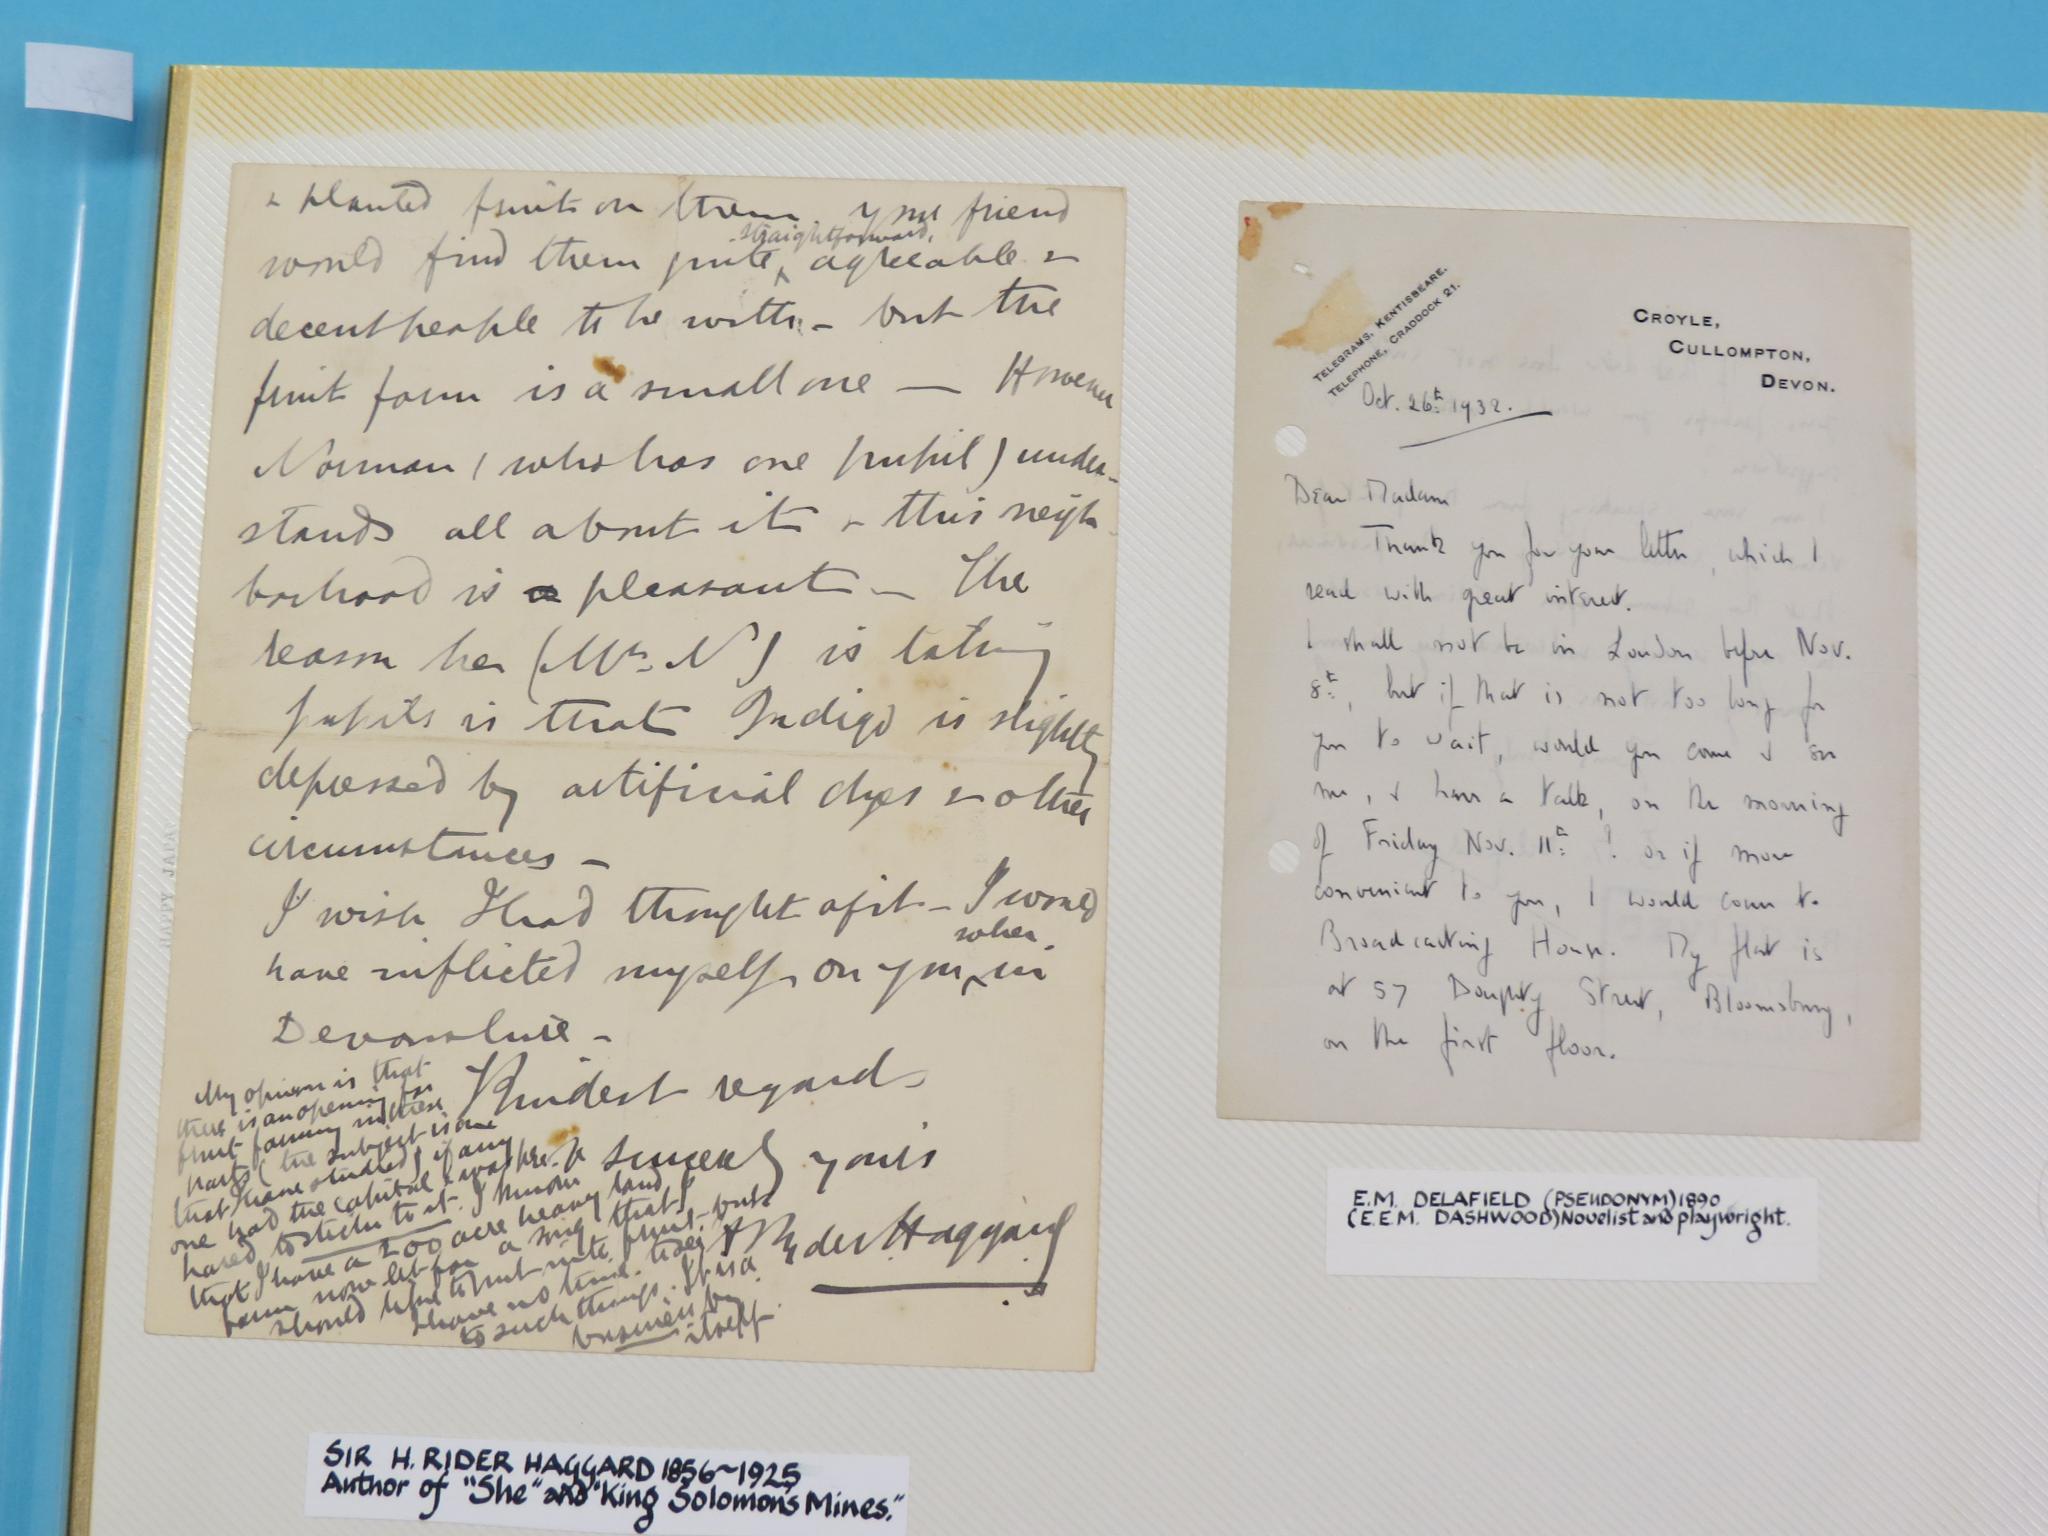 & planted fruit on them. Your friend
would find them quite straightforward, agreeable &
decent people to be with – but the
fruit farm is a small one — However
Norman (who has one pupil) under-
stands all about it & this neigh-
borhood is pleasant – The
reason he (Mr. N) is taking
pupils is that Indigo is slightly
depressed by artificial dyes & other
circumstances –
I wish I had thought of it – I would
have inflicted myself on you when in
Devonshire –
Kindest regards
sincerely yours
H Rider Haggard
My opinion is that
there is an opening for
fruit farming in these
parts (the subject is one
that I have studied) if any
one had the capital & was prepared
to stick to it. I know
that I have a 200 acre heavy land
farm now let for a song that I
should like to put into fruit – but
I have no time to see
to such things. It is a
business by
itself
SIR H. RIDER HAGGARD 1856~1925
Author of "She" and "King Solomon's Mines."
HAPPY JAPAN
TELEGRAMS, KENTISBEARE.
TELEPHONE, CRADDOCK 21.
CROYLE,
CULLOMPTON,
DEVON.
Oct. 26th 1932.
Dear Madam
Thank you for your letter, which I
read with great interest.
I shall not be in London before Nov.
8th, but if that is not too long for
you to wait, would you come & see
me, & have a talk, on the morning
of Friday Nov. 11th? or if more
convenient to you, I would come to
Broadcasting House. My flat is
at 57 Doughty Street, Bloomsbury,
on the first floor.
E.M. DELAFIELD (PSEUDONYM) 1890
(E.E.M. DASHWOOD) Novelist and playwright.